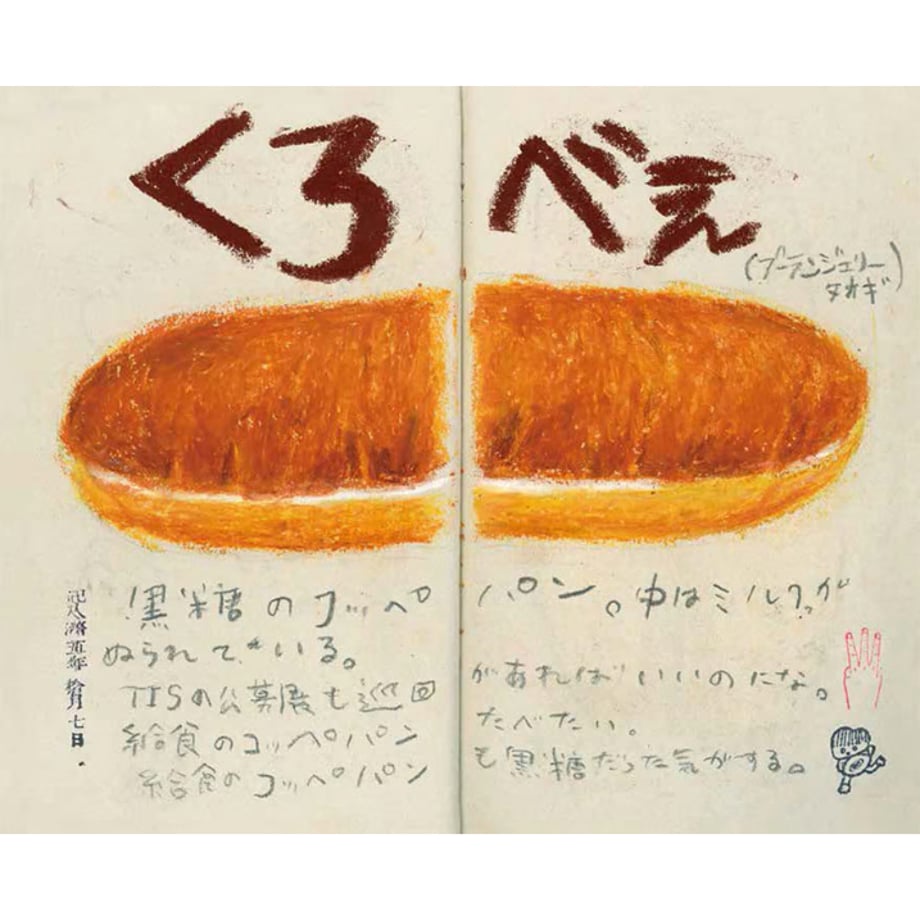 くろべぇ
(ブーランジェリー)
タカギ
黒糖のコッペパン。中はミルクが
ぬられている。
TISの公募展も巡回があればいいのにな。
給食のコッペパンたべたい。
給食のコッペパンも黒糖だった気がする。
記入濟五年拾月七日